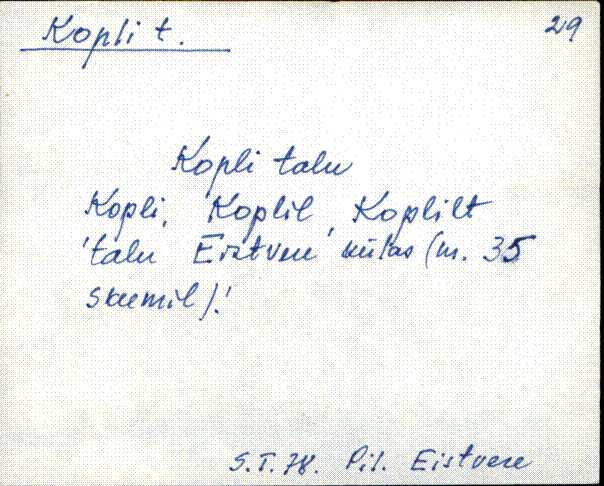 Kopli t.
29
Kopli talu
Kopli, Koplil, Koplilt
'talu Eistvere külas (nr. 35
skeemil).'
S.T. 78. Pil. Eistvere